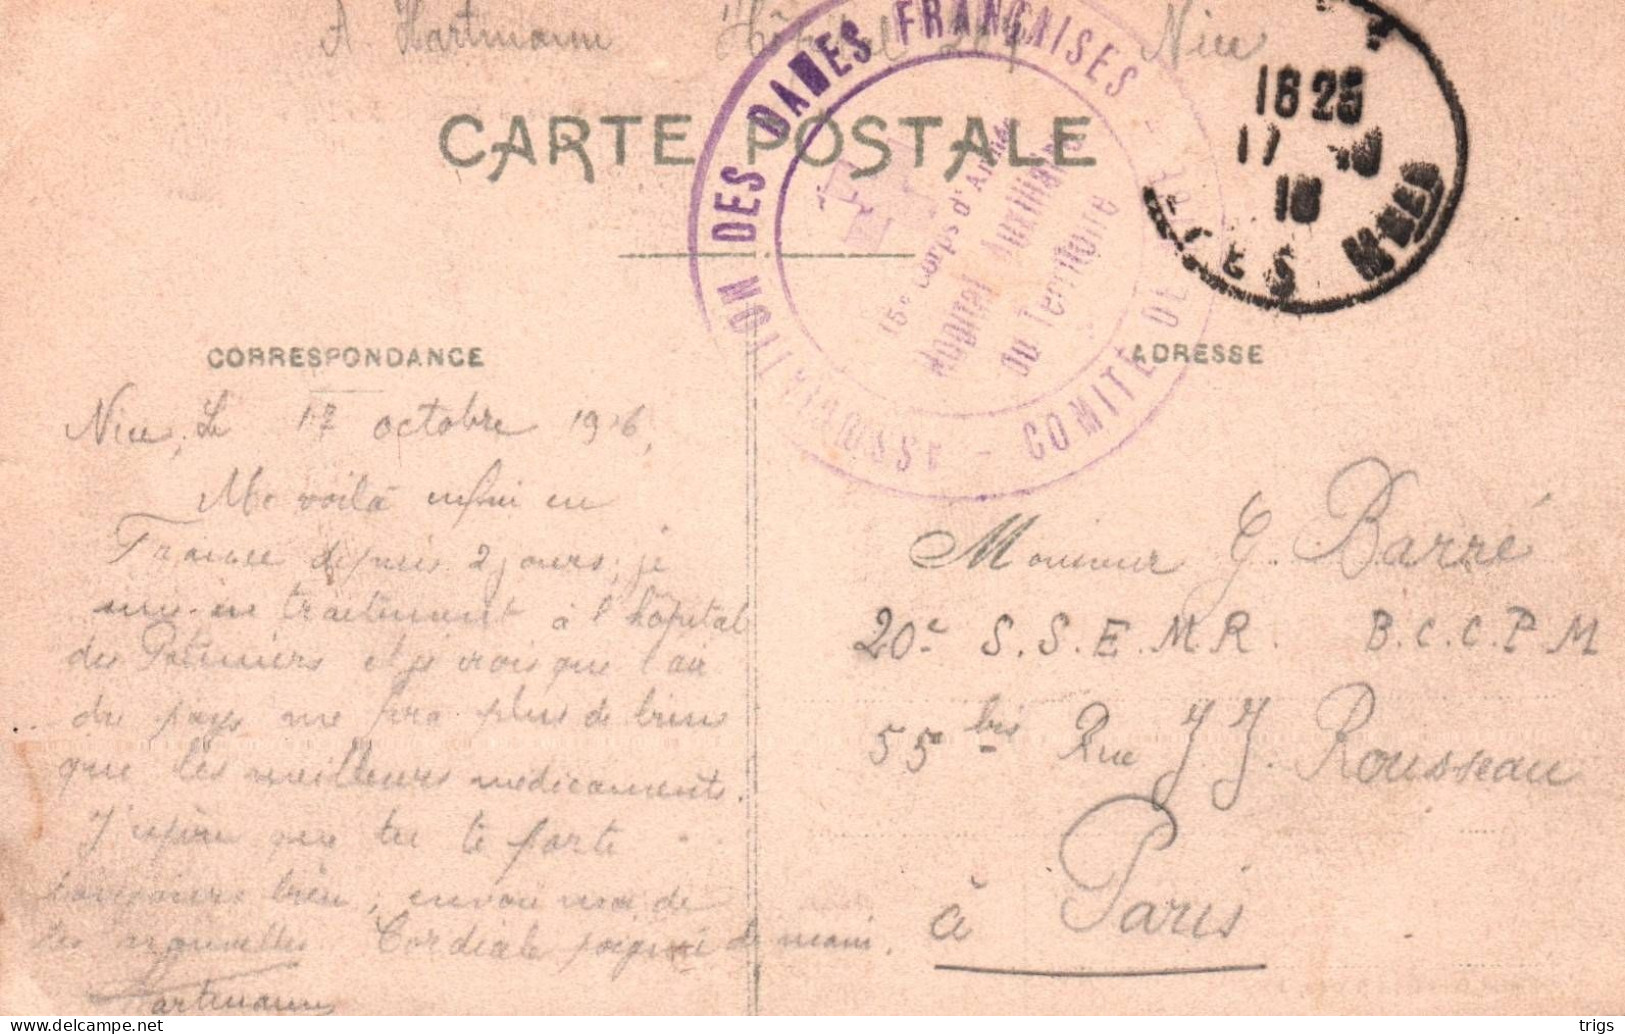 A Hartmann Hôpital Nice
CARTE POSTALE
ASSOCIATION DES DAMES FRANÇAISES - COMITÉ DE
15e Corps d'Armée
Hôpital Auxiliaire
du Territoire
16 25
17 - 10
16
ALPES MMES
CORRESPONDANCE
ADRESSE
Nice, le 17 octobre 1916,
Me voilà enfin en
France depuis 2 jours, je
suis en traitement à l'hôpital
des Palmiers et je crois que l'air
du pays me fera plus de bien
que les meilleurs médicaments.
J'espère que tu te porte
toujours bien, envoie moi de
tes nouvelles. Cordiale poignée de main.
Hartmann
Monsieur G. Barré
20e S.S.E.M.R. B.C.C.P.M
55 bis Rue J J. Rousseau
à Paris
trigs